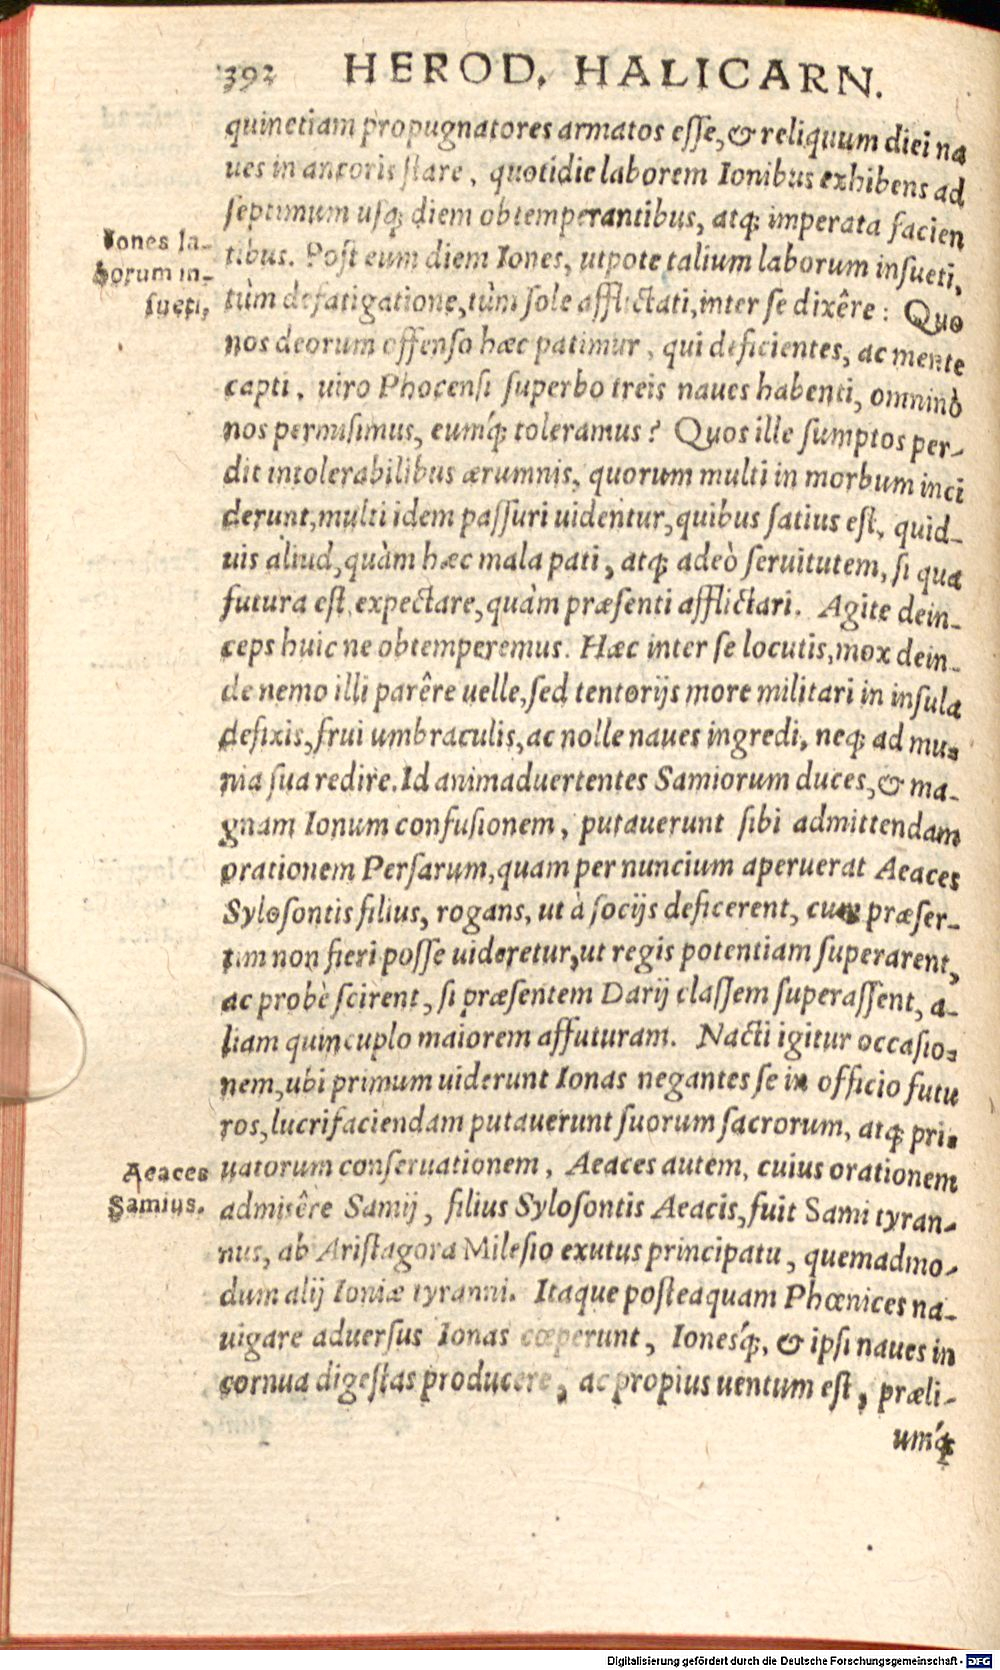 392 HEROD. HALICARN.
quinetiam propugnatores armatos esse, & reliquum diei na
ues in ancoris stare, quotidie laborem Ionibus exhibens ad
septimum usq; diem obtemperantibus, atq; imperata facien
Iones la-
borum in-
sueti.
tibus. Post eum diem Iones, utpote talium laborum insueti,
tùm defatigatione, tùm sole afflictati, inter se dixêre: Quo
nos deorum offenso hæc patimur, qui deficientes, ac mente
capti, uiro Phocensi superbo treis naues habenti, omninò
nos permisimus, eumq́; toleramus? Quos ille sumptos per-
dit intolerabilibus ærumnis, quorum multi in morbum inci
derunt, multi idem passuri uidentur, quibus satius est, quid-
uis aliud, quàm hæc mala pati, atq; adeò seruitutem, si qua
futura est expectare, quàm præsenti afflictari. Agite dein-
ceps huic ne obtemperemus. Hæc inter se locutis, mox dein-
de nemo illi parêre uelle, sed tentorijs more militari in insula
defixis, frui umbraculis, ac nolle naues ingredi, neq; ad mu-
nia sua redire. Id animaduertentes Samiorum duces, & ma-
gnam Ionum confusionem, putauerunt sibi admittendam
orationem Persarum, quam per nuncium aperuerat Aeaces
Sylosontis filius, rogans, ut à socijs deficerent, cum præser-
tim non fieri posse uideretur, ut regis potentiam superarent,
ac probè scirent, si præsentem Darij classem superassent, a-
liam quincuplo maiorem affuturam. Nacti igitur occasio-
nem, ubi primum uiderunt Ionas negantes se in officio futu
ros, lucrifaciendam putauerunt suorum sacrorum, atq; pri-
Aeaces
Samius.
uatorum conseruationem, Aeaces autem, cuius orationem
admisêre Samij, filius Sylosontis Aeacis, fuit Sami tyran-
nus, ab Aristagora Milesio exutus principatu, quemadmo-
dum alij Ioniæ tyranni. Itaque posteaquam Phœnices na-
uigare aduersus Ionas cœperunt, Ionesq́;, & ipsi naues in
cornua digestas producere, ac propius uentum est, præli-
umq́;
Digitalisierung gefördert durch die Deutsche Forschungsgemeinschaft - DFG